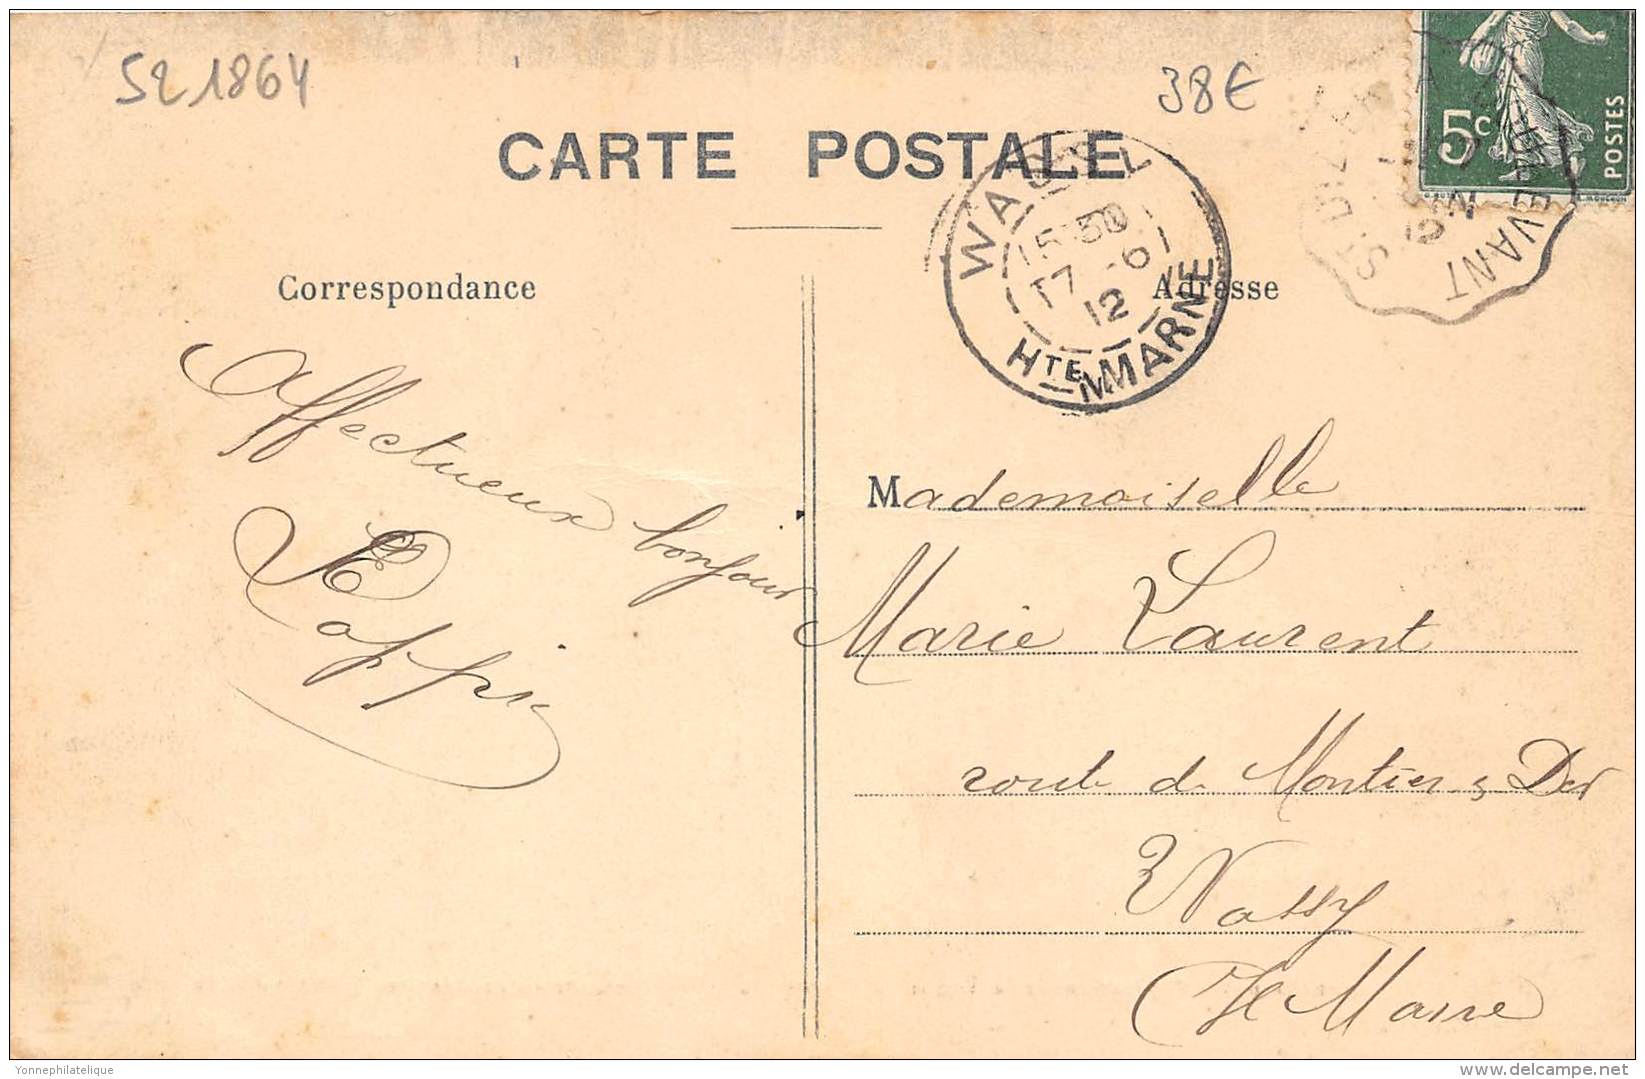 521864
38€
CARTE POSTALE
5c
POSTES
WASSY
15 30
17 -6
12
Hte MARNE
ST DIZIER A
DOULEVANT
Correspondance
Adresse
Affectueux bonjour
Mademoiselle
Marie Laurent
route de Montier s Der
Wassy
Hte Marne
Yonnephilatelique
delcampe.net